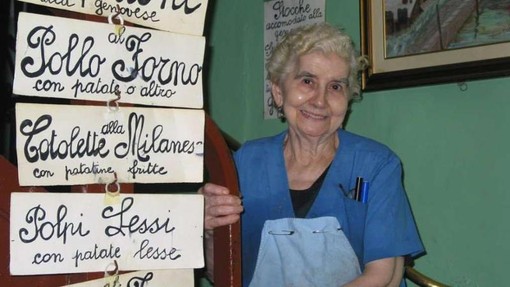 alla genovese
Pollo al Forno
con patate o altro
Cotolette alla Milanes
con patatine fritte
Polpi Lessi
con patate lesse
Stocche
accomodato alla